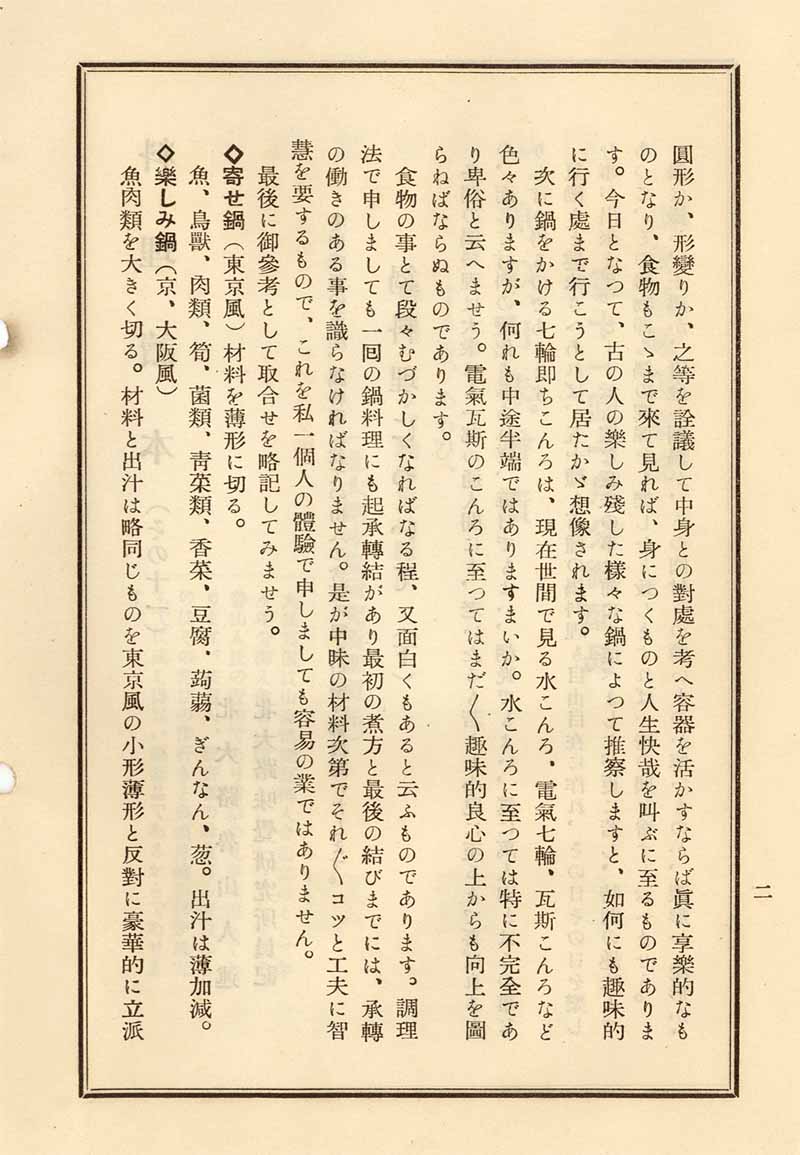 二
圓形か、形變りか、之等を詮議して中身との對處を考へ容器を活かすならば眞に享樂的なも
のとなり、食物もこゝまで來て見れば、身につくものと人生快哉を叫ぶに至るものでありま
す。今日となつて、古の人の樂しみ殘した樣々な鍋によつて推察しますと、如何にも趣味的
に行く處まで行こうとして居たかゞ想像されます。
次に鍋をかける七輪即ちこんろは、現在世間で見る水こんろ、電氣七輪、瓦斯こんろなど
色々ありますが、何れも中途半端ではありますまいか。水こんろに至つては特に不完全であ
り卑俗と云へませう。電氣瓦斯のこんろに至つてはまだ〳〵趣味的良心の上からも向上を圖
らねばならぬものであります。
食物の事とて段々むづかしくなればなる程、又面白くもあると云ふものであります。調理
法で申しましても一回の鍋料理にも起承轉結があり最初の煮方と最後の結びまでには、承轉
の働きのある事を識らなければなりません。是が中味の材料次第でそれ〴〵コツと工夫に智
慧を要するもので、これを私一個人の體驗で申しましても容易の業ではありません。
最後に御參考として取合せを略記してみませう。
◇寄せ鍋（東京風）材料を薄形に切る。
魚、鳥獸、肉類、筍、菌類、靑菜類、香菜、豆腐、蒟蒻、ぎんなん、葱。出汁は薄加減。
◇樂しみ鍋（京、大阪風）
魚肉類を大きく切る。材料と出汁は略同じものを東京風の小形薄形と反對に豪華的に立派